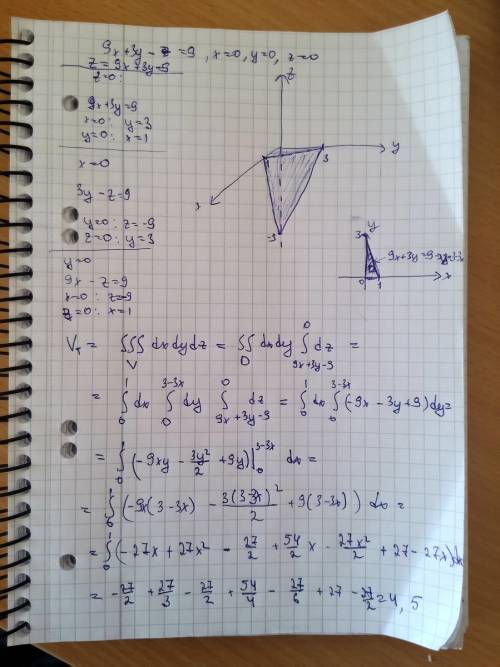 9x+3y-z=9, x=0, y=0, z=0
z=9x+3y-9
z=0:
9x+3y=9
x=0: y=3
y=0: x=1
x=0
3y-z=9
y=0: z=-9
z=0: y=3
y=0
9x-z=9
x=0: z=-9
z=0: x=1
z
y
1
3
-9
y
3
0
1
x
V_T = ∭_V dxdydz = ∬_D dxdy ∫_{9x+3y-9}^{0} dz =
= ∫_0^1 dx ∫_0^{3-3x} dy ∫_{9x+3y-9}^0 dz = ∫_0^1 dx ∫_0^{3-3x} (-9x-3y+9)dy=
= ∫_0^1 (-9xy - 3y²/2 + 9y)|_0^{3-3x} dx =
= ∫_0^1 (-9x(3-3x) - 3(3-3x)²/2 + 9(3-3x)) dx =
= ∫_0^1 (-27x + 27x² - 27/2 + 54/2 x - 27x²/2 + 27-27x)dx
= -27/2 + 27/3 - 27/2 + 54/4 - 27/6 + 27 - 27/2 = 4,5